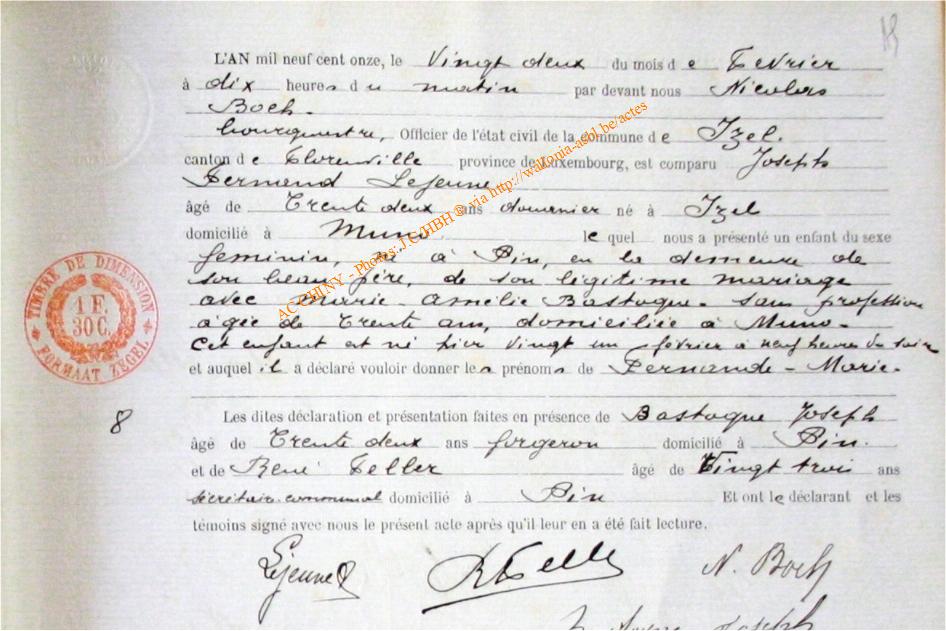 L'AN mil neuf cent onze, le Vingt deux du mois de Fevrier
à dix heures du matin par devant nous Nicolas
Boch.
bourgmestre, Officier de l'état civil de la commune de Izel.
canton de Florenville province de Luxembourg, est comparu Joseph
Fernand Lejeune
âgé de Trente deux ans douanier né à Izel
domicilié à Muno. lequel nous a présenté un enfant du sexe
feminin, né à Pin, en la demeure de
son beau père, de son légitime mariage
avec Marie Amélie Bastogne. sans profession
âgée de Trente ans, domiciliée à Muno.
Cet enfant est né hier vingt un février à neuf heures du soir
et auquel il a déclaré vouloir donner les prénoms de Fernande-Marie.
8
Les dites déclaration et présentation faites en présence de Bastogne Joseph
âgé de Trente deux ans forgeron domicilié à Pin.
et de René Feller âgé de Vingt trois ans
secrétaire communal domicilié à Pin Et ont le déclarant et les
témoins signé avec nous le présent acte après qu'il leur en a été fait lecture.
Lejeune R Feller N. Boch
Joseph
TIMBRE DE DIMENSION
1 F.
30 C.
FORMAAT ZEGEL
AC CHINY - Photos: J.C.HBH © via http://wallonia-asbl.be/actes